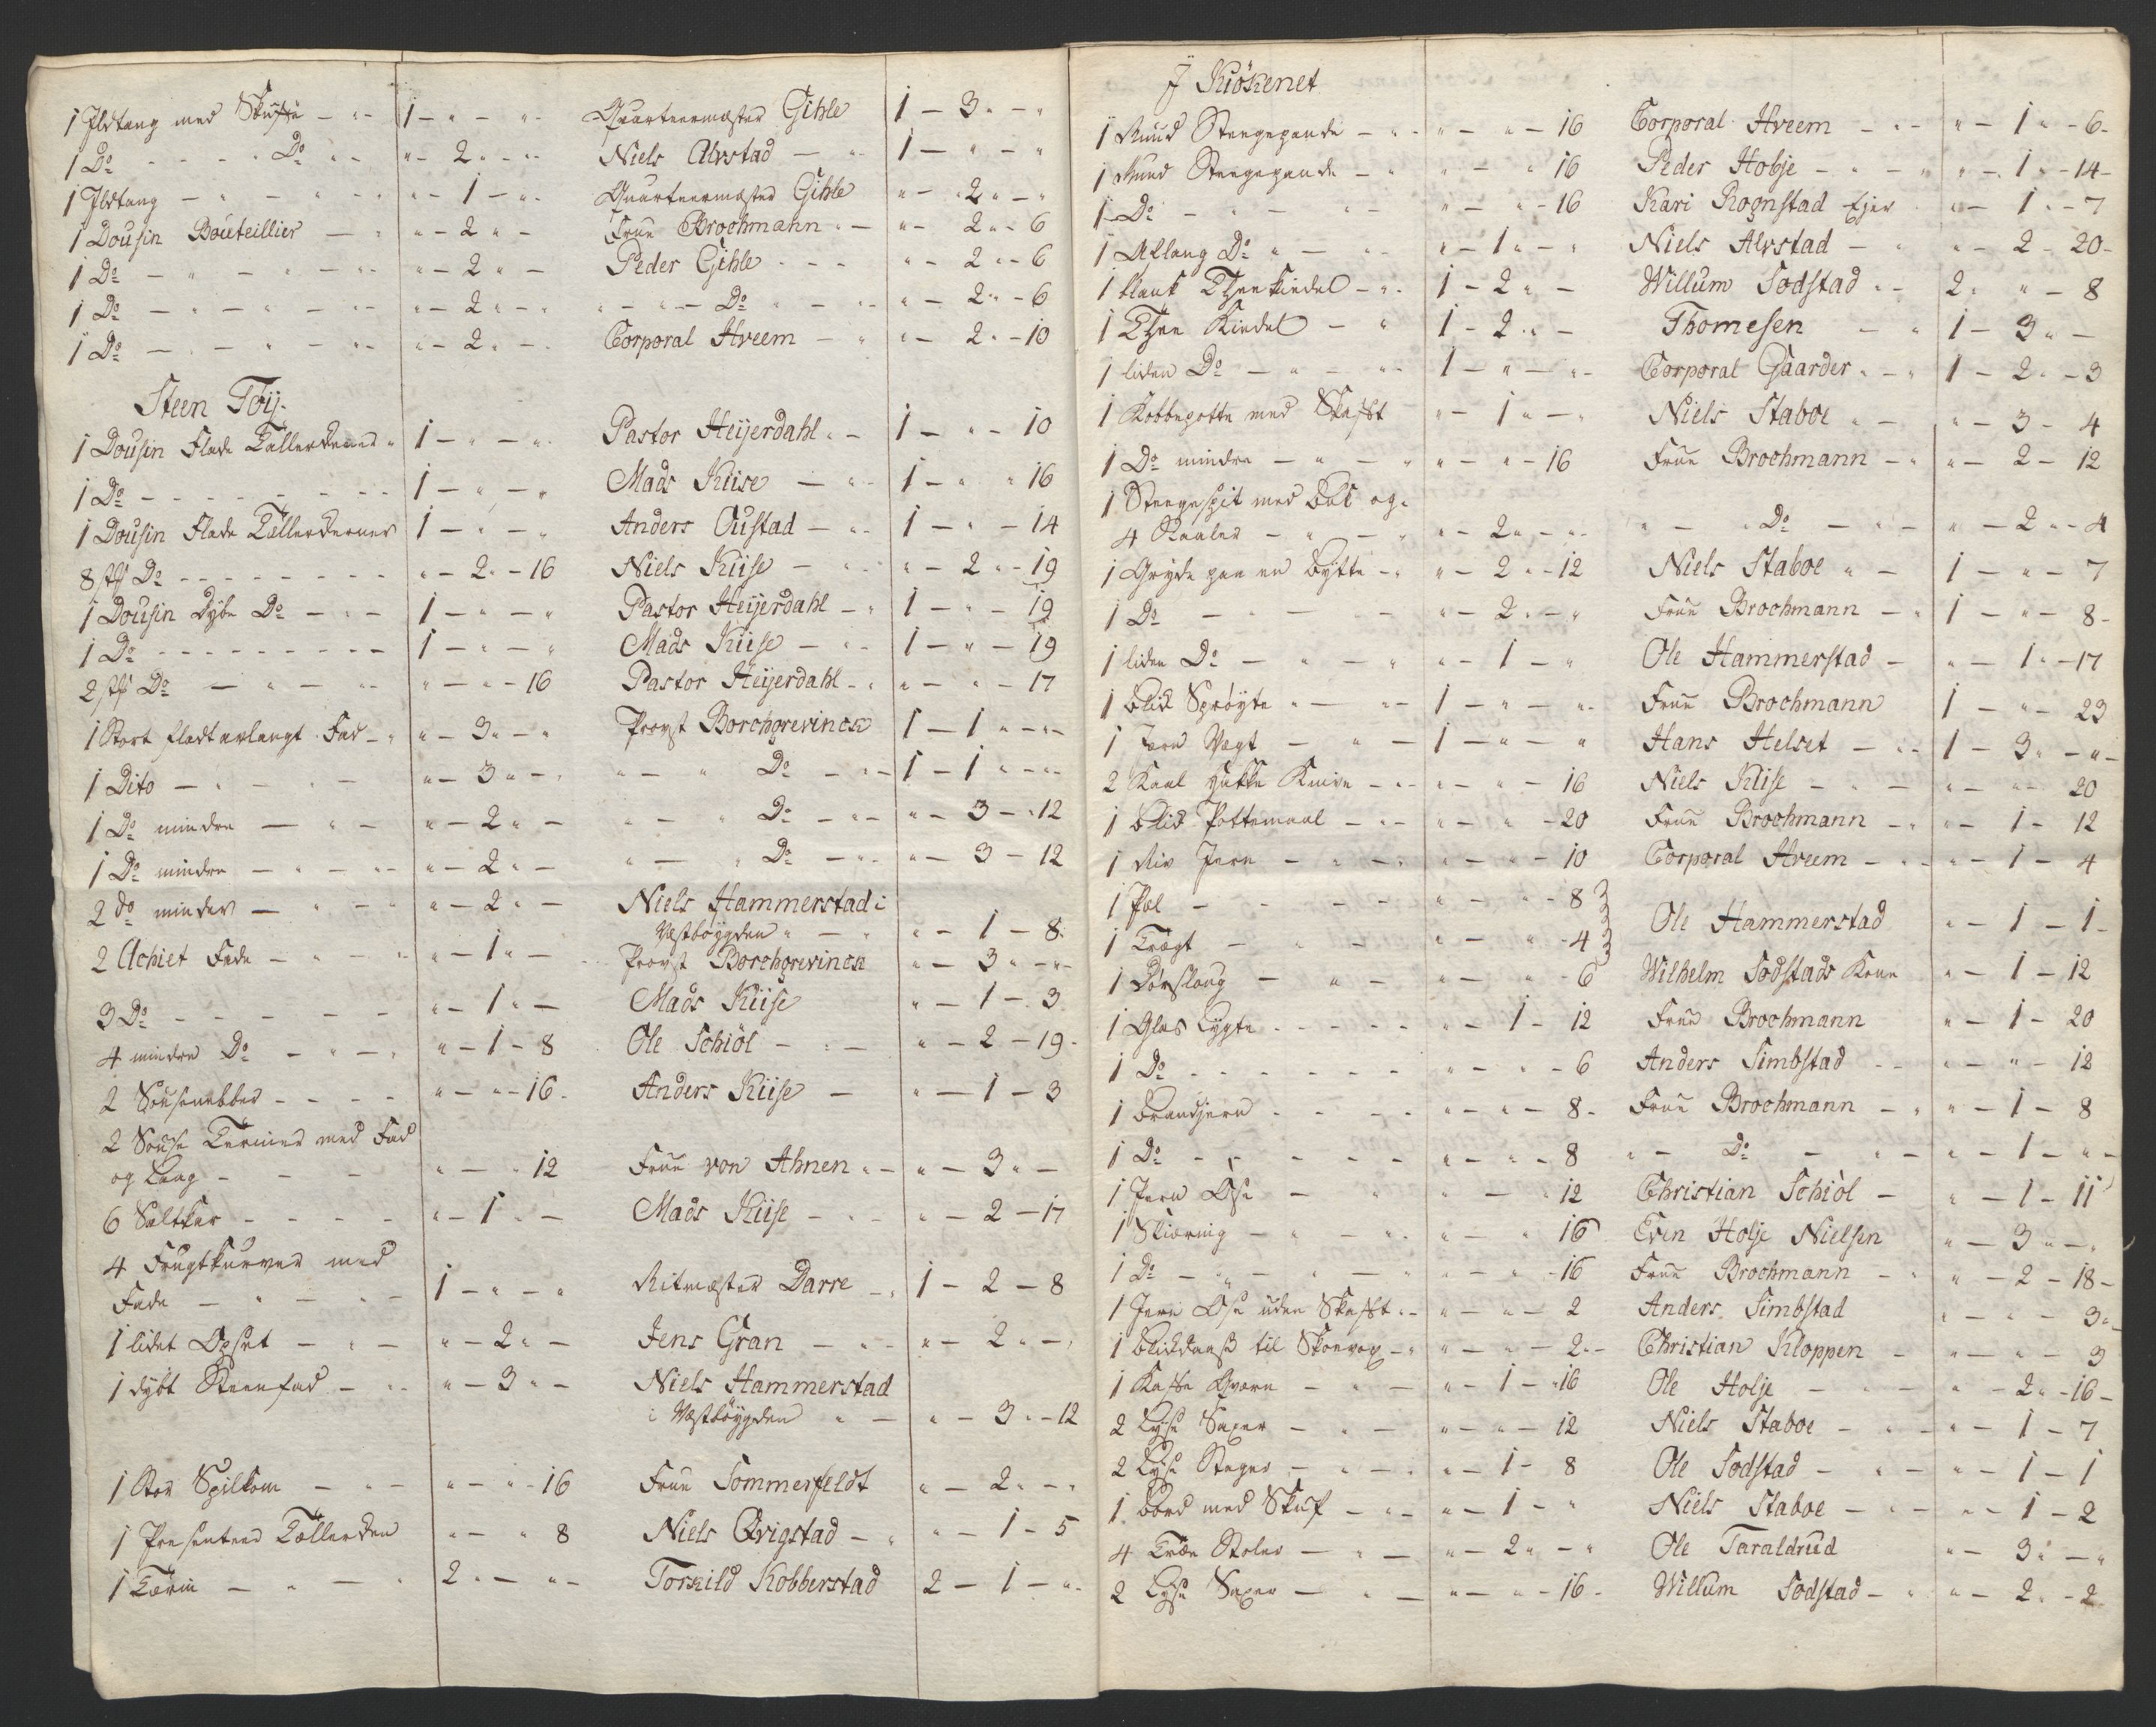 1 Ildtang med Skuffe - " - 1 - " - " - Quarteermester Gihle 1 - 3 " - "
1 Do - - - - Do " - " - 2 " - " - Niels Alvstad - " - 1 - " - "
1 Ildtang - " - " - " - " - 1 - " - Quarteermester Gihle " - 2 " - "
1 Dousin Bouteillier - " " - 2 " - Frue Brochmann " - " - 2 " - 6
1 Do - " - " - " - " - 2 " - Peder Gihle - - - " - 2 " - 6
1 Do - " - " - " - " - 2 " - " - " - Do " - " - " - 2 " - 6
1 Do - " - " - " - " - 2 " - Corporal Hveem - " " - 2 " - 10
Steen Töij.
1 Dousin Flade Tallerkener " 1 - " - " Pastor Heijerdahl " - 1 - " - 10
1 Do - - - - - - - - 1 - " - " Mads Kiise - " - 1 - " " 16
1 Dousin Flade Tallerkerner 1 - " - " Anders Oustad - " - 1 - " - 14
8 st Do - - - - - - - - " - 2 " - 16 Niels Kiise - " - " - 2 " - 19
1 Dousin Dybe Do - " - 1 - " - " Pastor Heijerdahl - " 1 - " - 19
1 Do - - - - - - - - - 1 - " - " Mads Kiise - " - 1 - " - 19
2 st Do - " - " - " - " - 16 Pastor Heijerdahl - " " - " - 17
1 Stort fladt avlangt Fad - " " - 3 " - " Provst Borchgrevinck 1 - 1 " - " -
1 Dito - " - " - " - 3 " - " " - " Do - " - 1 - 1 " - " -
1 Do mindre - " - " - 2 " - " - " Do - " - " - 3 - " 12
1 Do mindre - " - " - " - 2 " - " - " Do - " - " - 3 - 12
2 do minder - " - " " - 2 " - Niels Hammerstad i
Vestbøygden " - " " - 1 - 8.
2 Achiet Fade - " - " - " - 1 " - Provst Borchgrevinck " - 3 " - " -
3 Do - - - - - - " - 1 " - Mads Kiise " - 1 - 3
4 mindre Do - " - " " - 1 - 8 Ole Schiöl - " - " - 2 - 19 -
2 Sousenebber - - - - " - " - 16 - Anders Kiise - " - 1 - 3
2 Souse Terriner med Fad
og Laag - - - " - " 12 Frue von Ahnen " - " - 3 " -
6 Saltkar - - - - " - 1 " - Mads Kiise - " - " - 2 - 17
4 Frugtkurver med
Fade - " - " - 1 - " - " Ritmester Darre - " 1 - 2 - 8
1 lidet Opset - " - " - 2 " - Jens Gran - " - " - 2 " - "
1 dybt Steenfad - " - " - 3 " - Niels Hammerstad
i Vestbøygden " - " - 3 " - 12
1 Stor Spilkom - " - " - " - 16 Frue Sommerfeldt " - 2 " - "
1 Presenteer Tallerken " - " 8 Niels Qvigstad - " " - 1 - 5
1 Terrin - " - " 2 " - " - Torkild Kobberstad 2 - 1 - "
J Kiökenet
1 Rund Steegepande - " - " - " - 16 Corporal Hveem - " - " - 1 " - 6 -
1 Rund Steegepande - " " - " - " 16 Peder Hobje - " - " " - 1 " - 14 -
1 Do - " - " - " - " - 16 Kari Rognstad Ejer " - 1 " - 7
1 Aflang Do " - " - " - 1 " - " Niels Alvstad - " " - 2 - 20 -
1 blank Thee Kiedel - " - 1 - 2 " - Willum Sodstad " - 2 " " - 8
1 Thee Kiedel - " 1 - 2 " - Thomesen - " 1 - 3 " -
1 liden Do - " - " - 1 - " - " - Corporal Gaarder " - " 1 - 2 " - 3
1 Kobbepotte med Skafft " - 1 " - " Niels Staboe " - " - 3 - 4
1 Do mindre - " - " " - " - 16 Frue Brochmann - " " - 2 - 12
1 Steegespit med Buk og "
4 Naaler - " - " " - 2 " - " - " - " Do - " - " - 2 " - 4
1 Gryde paa en Bøtte - " " - 2 " - 12 Niels Staboe " - 1 - " - 7
1 Do - " - - " - 2 " - " Frue Brochmann - " 1 - " - 8 -
1 liden Do - " - " " - 1 - " Ole Hammerstad - " - 1 " - 17
1 Blik Sprøyte " - " - 1 - " - " - Frue Brochmann 1 - " - 23
1 Jern Vægt - " - 1 - " - " Hans Helset - " - 1 - 3 " - " -
2 Kaal Hakke Knive - " - " - " - 16 Niels Kiise - " - " - " - 20
1 Blik Pottemaal - " - " - " - 20 Frue Brochmann - " " - 1 - 12
1 Riv Jern - " - " " - " - 10 Corporal Hveem - " - " - 1 - 4
1 Pæl - - - - " - " - 8
1 Tragt - " - " - " - 4 Ole Hammerstad " - 1 - 1 -
1 Dørslaug - " - " - " - 6 Wilhelm Sodstads Kone " - 1 - 12
1 Glas Lygte - - - - - " - 1 - 12 Frue Brochmann " - 1 - 20
1 Do - - - - - - " - " - 6 Anders Simbstad - - " - " - 12
1 Brandjern - - - - " - " - 8 - Frue Brochmann - " " - 1 - 8
1 Do - - - - - " - " - 8 " - Do - " - " - 1 - " -
1 Jern Øse - " " - " 12 Christian Schiöl - " - 1 - 11
1 Skiæring - " - " - " - " 16 Even Holje Nielsen " - 3 " - "
1 Do - " - " - " " - " - 16 Frue Brochmann - " " - 2 - 18 -
1 Jern Øse uden Skafft " - " - " - 2 Anders Simbstad " - " - 3 " -
1 til - " " - " - 2 " - Christian Kloppen - " - " - 3
1 Kaffe Qværn - " - " - 1 - " 16 Ole Holje - " - " - 2 " - 16 -
2 Lyse Saxer - " - " - " - 12 Niels Staboe - " - " - 1 - 7
2 Lyse Stager - " - " " - 1 - 8 Ole Sodstad - " - " - 1 - 1
1 Bord med Skuf - " - " - 1 - " Niels Staboe - " - " - 1 - 2
4 Træe Stoler - " - " - 2 " - " Ole Taraldrud " - 3 " - "
2 Lyse Saxer - " - " - " - 16 - Willum Sodstad - " " - 2 " - 2